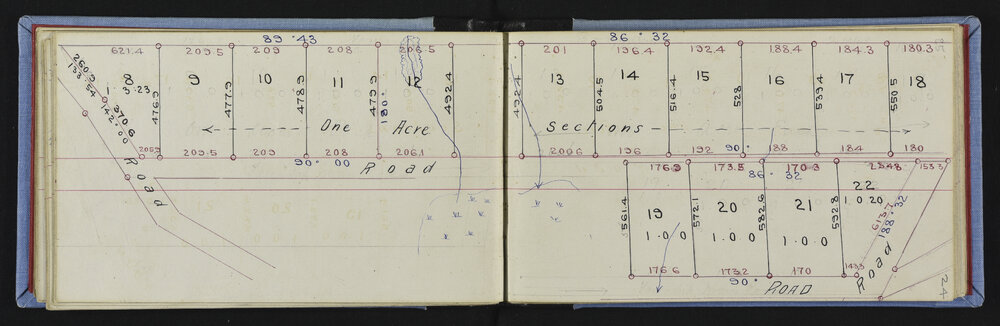 89° 43 86° 32
621.4 209.5 209 208 206.5 201 196.4 192.4 188.4 184.3 180.3
8 9 10 11 12 13 14 15 16 17 18
3.23
260.9
133° 54
370.6
142° 00
476.9 477.9 478.9 479.9 180° 492.4 492.4 504.5 516.4 528 539.4 550.5
One Acre Sections
209.5 209 208 206.1 200.6 196 192 90° 188 184 180
90° 00
Road Road
176.9 173.5 86° 32 170.3 153.3
19 20 21 22
1.0.0 1.0.0 1.0.0 1.0.20
561.4 572.1 582.6 592.8 613.7 188° 32
176.6 173.2 170 143.3
90°
ROAD Road
24